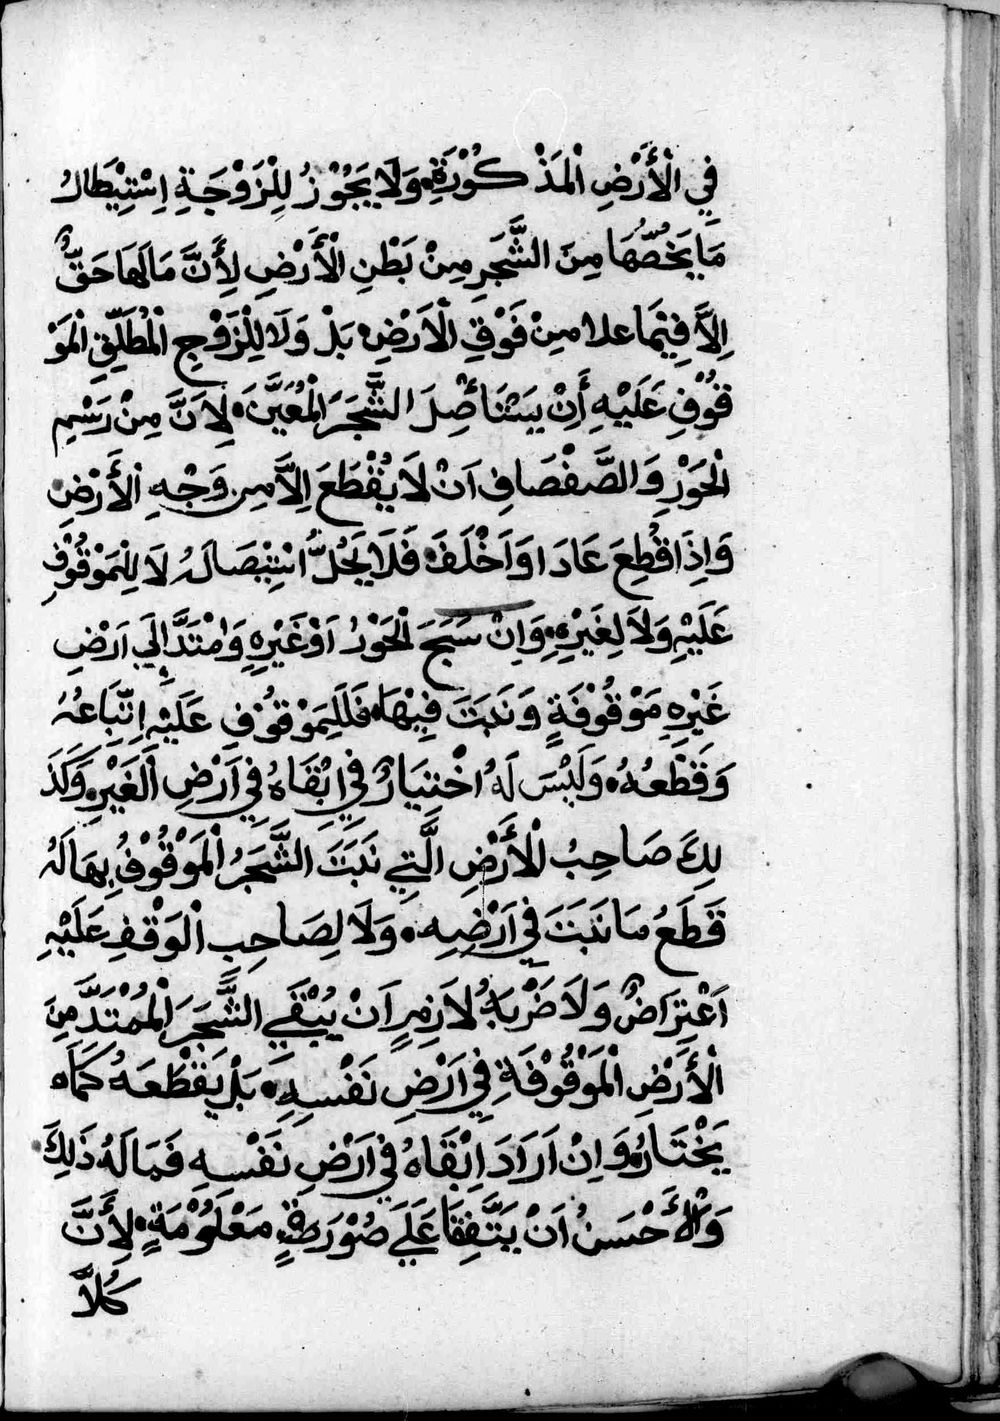 فِي الْأَرْضِ الْمَذْكُوْرَةِ. وَلَا يَجُوْزُ لِلْزَوْجَةِ اِسْتِيْطَالُ
مَا يَخُصُّهَا مِنَ الشَّجَرِ مِنْ بَطْنِ الْأَرْضِ لِأَنَّ مَا لَهَا حَقٌّ
اِلَّا فِيْمَا علا مِنْ فَوْقِ الْاَرْضِ بَلْ وَلَا لِلْزَوْجِ الْمُطَلِّقِ الْمَوْ
قُوْفِ عَلَيْهِ أَنْ يَسْتَأْصِلَ الشَّجَرَ الْمُعَيَّنَ. لِاَنَّ مِنْ رَسْمِ
الْحَوْرِ وَالصَّفْصَافِ اَنْ لَا يُقْطَعَ اِلَّا مِن وَجْهِ الْأَرْضِ
وَاِذَا قُطِعَ عَادَ اوَاَخْلَفَ. فَلَا يَحُلُّ اسْتِيْصَالَهُ لَا لِلْمَوْقُوْفِ
عَلَيْهِ وَلَا لِغَيْرِهِ. وَاِنْ سَبَحَ الْحَوْرُ اَوْ غَيْرِهِ وَامْتَدَّ اِلَي اَرْضِ
غَيْرِهِ مَوْقُوْفَةٍ وَنَبَتَ فِيْهَا. فَلَلِمَوْقُوْفِ عَلَيْهِ اِتِّبَاعُهُ
وَقَطْعُهُ. وَلَيْسَ لَهُ اخْتِيَارٌ فِي اِبْقَاهُ فِي اَرْضِ الْغَيْرِ. وَكَذَ
لِكَ صَاحِبُ الْأَرْضِ الَّتِي نَبَتَ الشَّجَرُ الْمَوْقُوْفُ بِهَا لَهُ
قَطَعُ مَا نَبَتَ فِي اَرْضِهِ. وَلَا لِصَاحِبِ الْوَقْفِ عَلَيْهِ
اَعْتِرَاضٌ وَلَا ضَرْبَةُ لَازِمٍ اَنْ يُبْقَي الشَّجَرَ الْمُمْتَدَّ مِنَ
الْأَرْضِ الْمَوْقُوْفَةِ فِي اَرْضِ نَفْسِهِ. بَلْ يَقْطَعَهُ كَمَاه
يَخْتَارُ. وَاِنْ اَرَادَ اِبْقَاهُ فِي اَرْضِ نَفْسِهِ فَمَا لَهُ ذَلِكَ
وَالْأَحْسَنُ اَنْ يَتَّفِقَا عَلَي صُوْرَةٍ مَعْلُوْمَةٍ. لِأَنَّ
كُلًّا